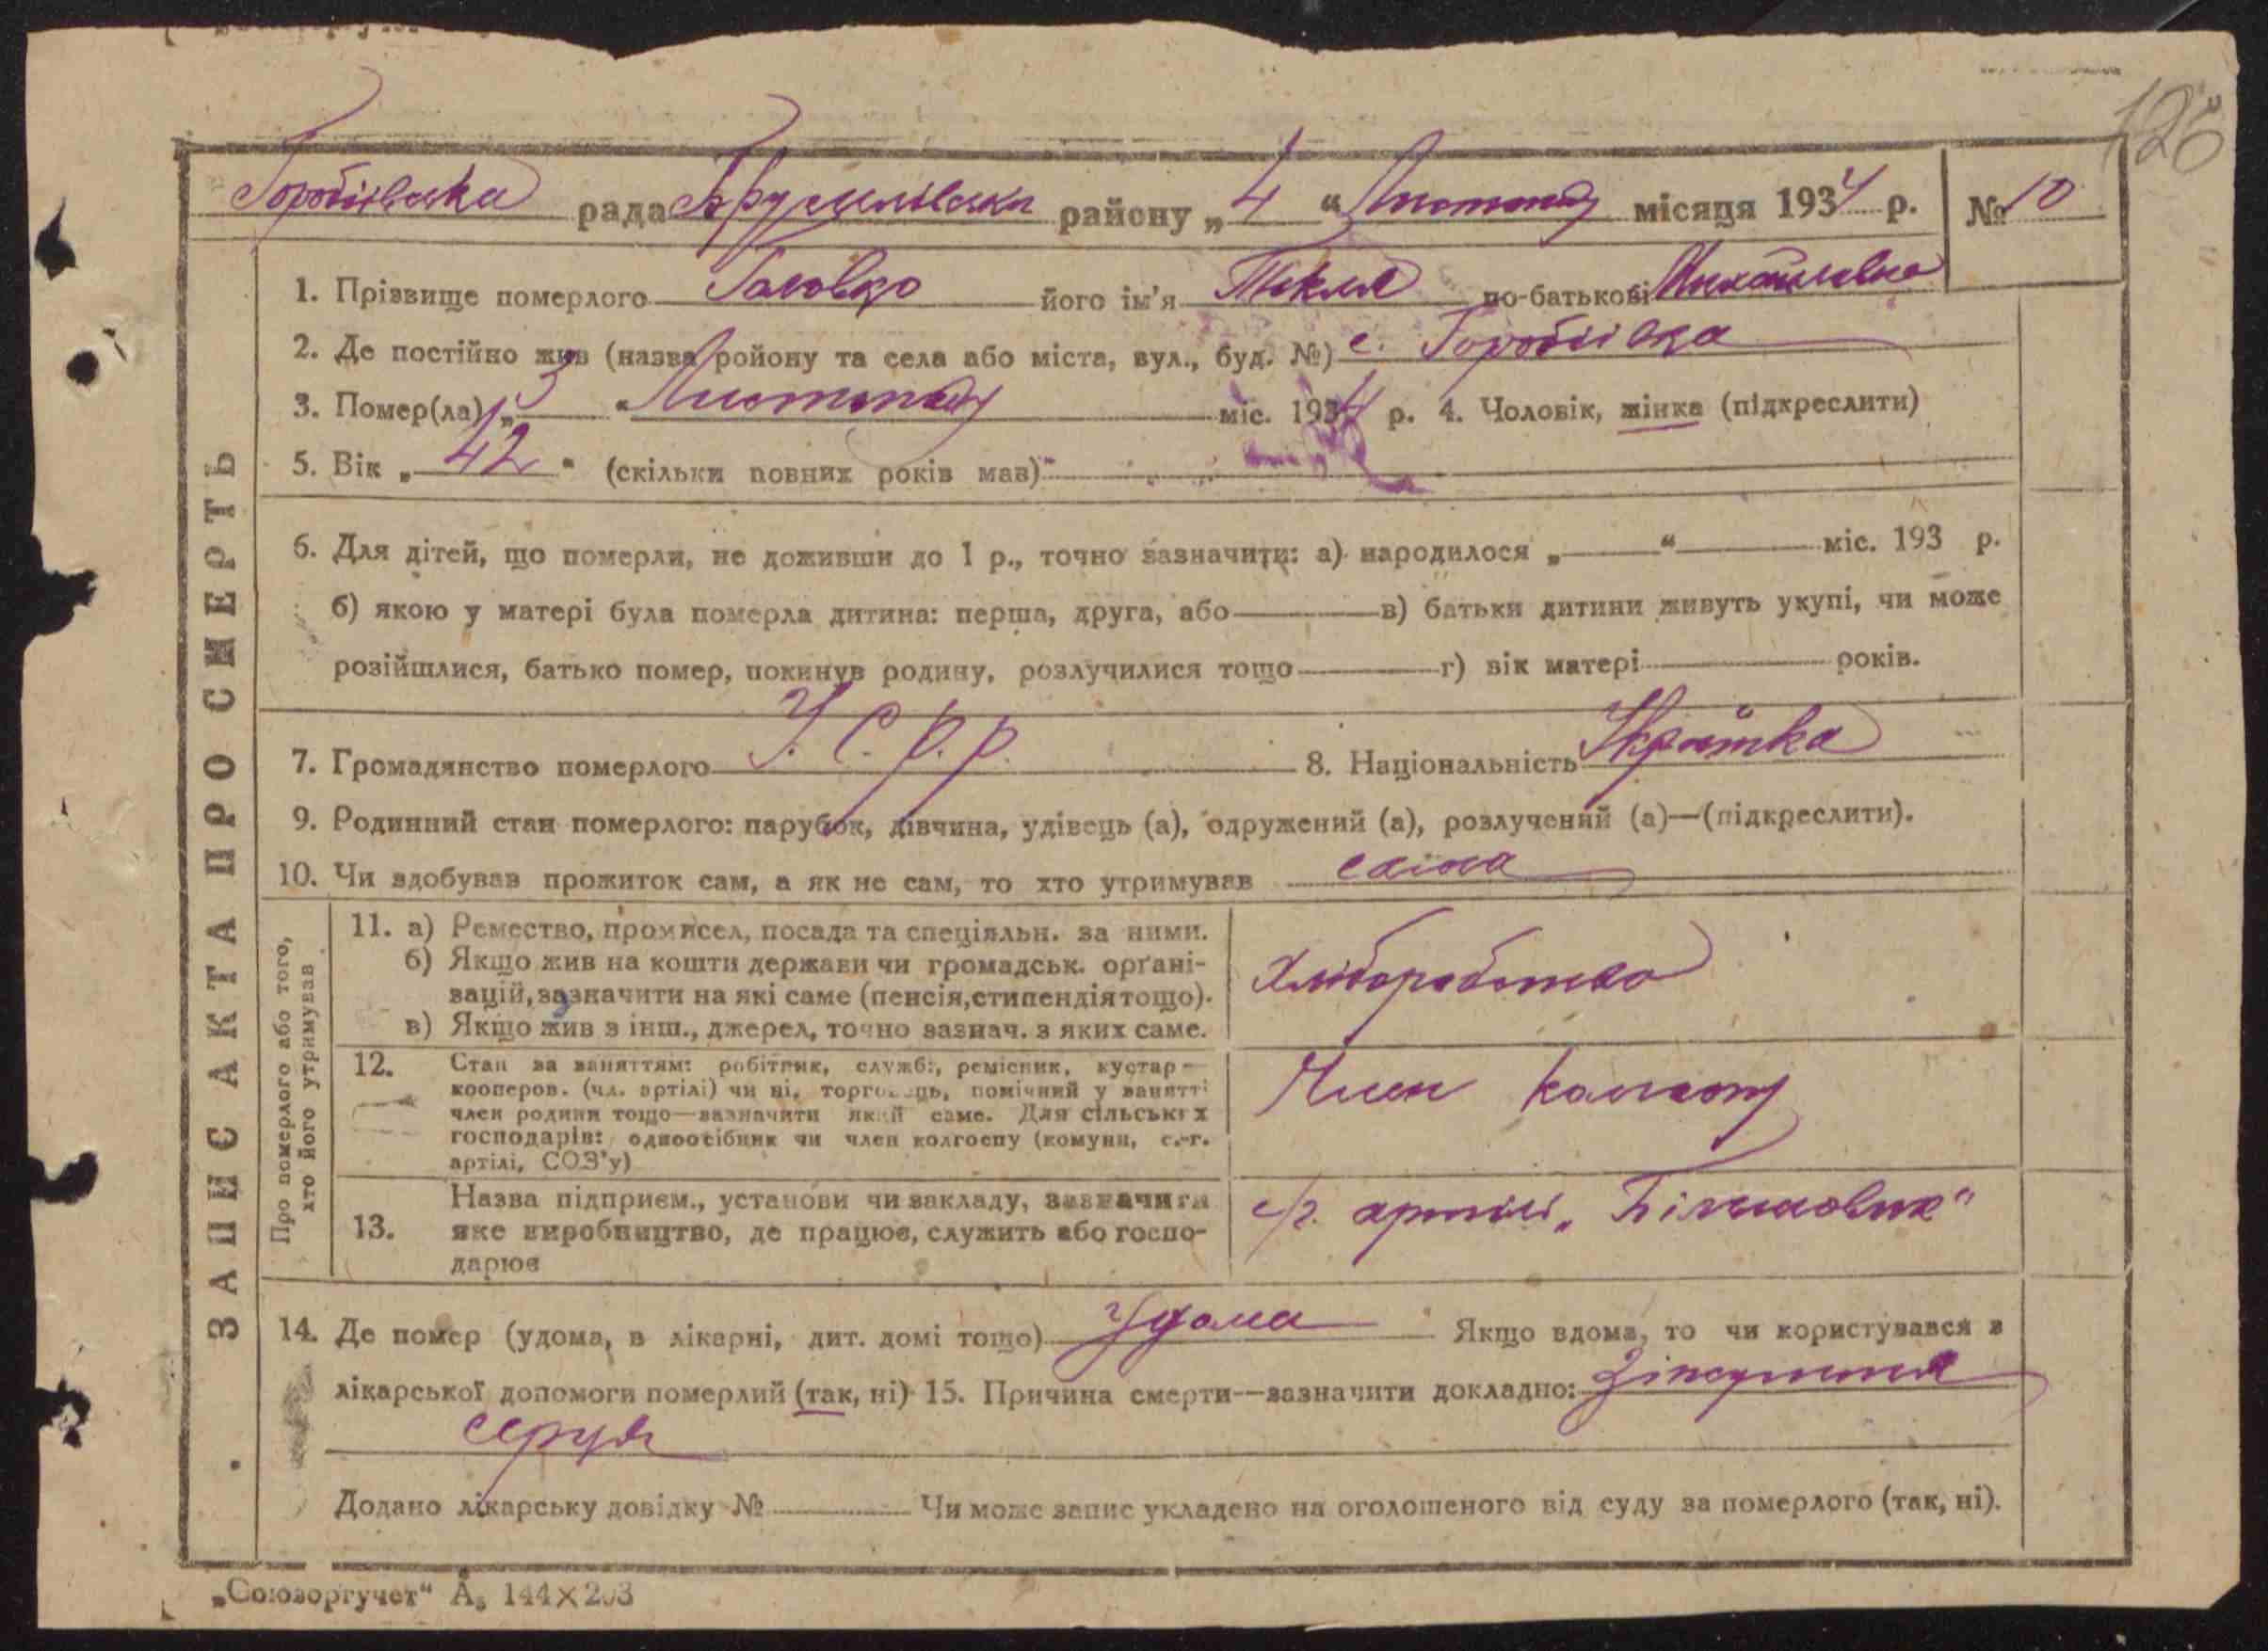 126
Горобіївська рада Брусилівськ району „4“ Листопад місяця 1934 р. № 10
ЗАПИС АКТА ПРО СМЕРТЬ
1. Прізвище померлого Головко його ім'я Текля по-батькові Михайлівна
2. Де постійно жив (назва ройону та села або міста, вул., буд. №) с. Горобіівка
3. Помер(ла) „3“ Листопад міс. 1934 р. 4. Чоловік, жінка (підкреслити)
5. Вік „42“ (скільки повних років мав)
6. Для дітей, що померли, не доживши до 1 р., точно зазначити: а) народилося „ “ міс. 193 р.
б) якою у матері була померла дитина: перша, друга, або в) батьки дитини живуть укупі, чи може
розійшлися, батько помер, покинув родину, розлучилися тощо г) вік матері років.
7. Громадянство померлого У.С.Р.Р. 8. Національність Українка
9. Родинний стан померлого: парубок, дівчина, удівець (а), одружений (а), розлучений (а)—(підкреслити).
10. Чи здобував прожиток сам, а як не сам, то хто утримував
Про померлого або того,
хто його утримував
11. а) Ремество, промисел, посада та спеціяльн. за ними.
б) Якщо жив на кошти держави чи громадськ. орґані-
зацій, зазначити на які саме (пенсія, стипендія тощо).
в) Якщо жив з інш., джерел, точно зазнач. з яких саме.
Хліборобство
12. Стан за заняттям: робітник, службː, ремісник, кустар—
кооперов. (чл. артілі) чи ні, торговець, помічний у занятті
член родини тощо—зазначити який саме. Для сільських
господарів: одноосібник чи член колгоспу (комуни, с.-г.
артілі, СОЗ'у)
Член колгоспу
13. Назва підприєм., установи чи закладу, зазначити
яке виробництво, де працює, служить або госпо-
дарює
с/г. артілі „Більшовик“
14. Де помер (удома, в лікарні, дит. домі тощо) Удома Якщо вдома, то чи користувався з
лікарської допомоги померлий (так, ні) 15. Причина смерти—зазначити докладно: Зіпсування
серця
Додано лікарську довідку № Чи може запис укладено на оголошеного від суду за померлого (так, ні).
„Союзоргучет“ А₅ 144×203